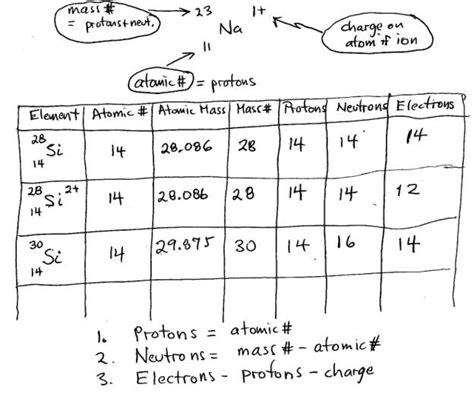 mass # = protons + neut.
23 Na 1+
11
charge on atom if ion
atomic # = protons
Element Atomic # Atomic Mass Mass# Protons Neutrons Electrons
28 14 Si 14 28.086 28 14 14 14
28 14 Si 2+ 14 28.086 28 14 14 12
30 14 Si 14 29.875 30 14 16 14
1. Protons = atomic #
2. Neutrons = mass # - atomic #
3. Electrons - protons - charge